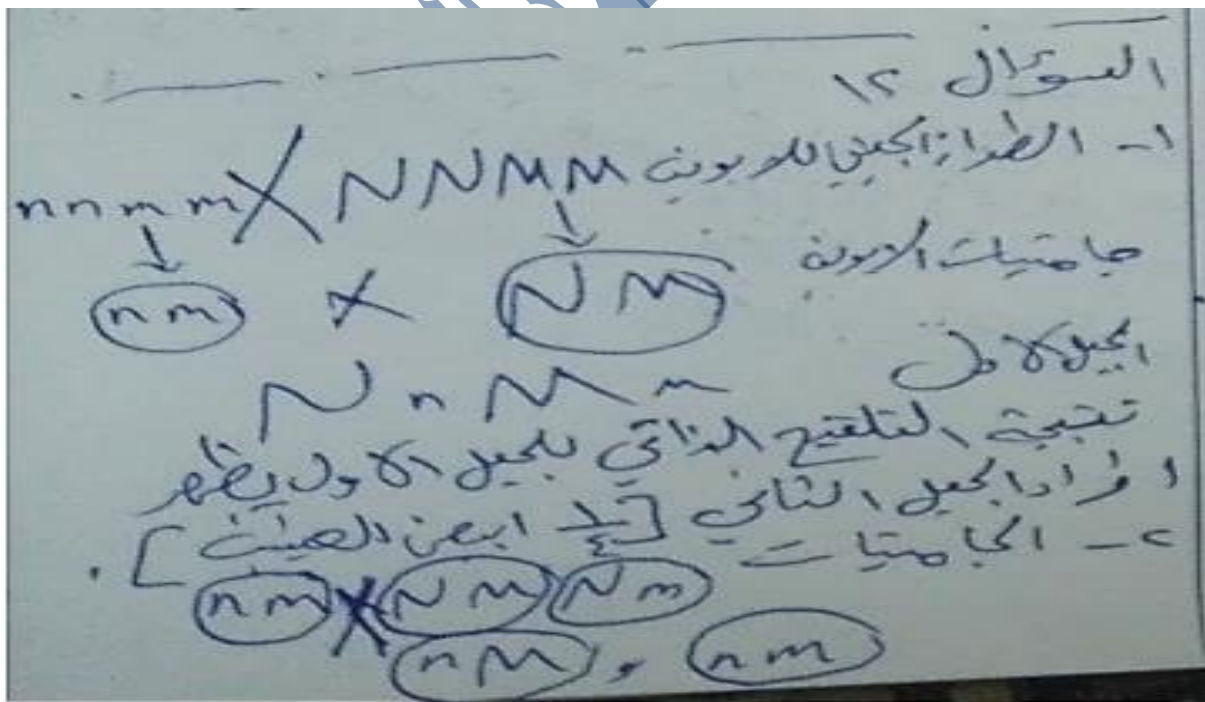 السؤال ١٢
١- الطراز الجيني للابوين NNMM X nnmm
جاميتات الابوين NM X nm
الجيل الاول
NnMm
نتيجة التلقيح الذاتي للجيل الاول يظهر
افراد الجيل الثاني [١/٤ ابيض العينين].
٢- الجاميتات
nm X NM Nm
nM , nm